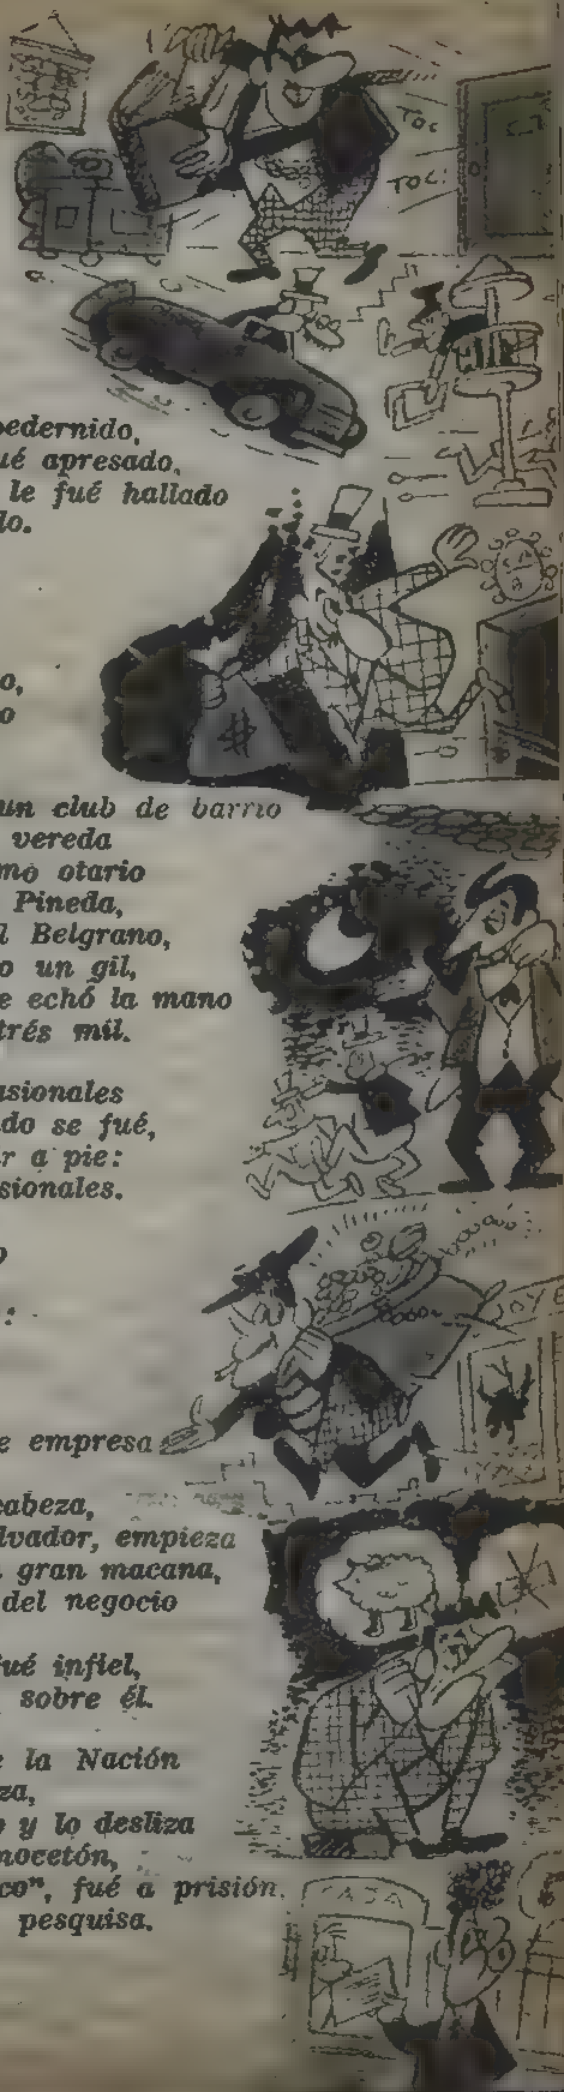 TOC
TOC!
pedernido,
ué apresado,
le fué hallado
do.
o,
o
un club de barrio
vereda
mo otario
Pineda,
l Belgrano,
o un gil,
e echó la mano
trés mil.
asionales
do se fué,
r a pie:
sionales.
o
:
e empresa
cabeza,
lvador, empieza
gran macana,
del negocio
ué infiel,
sobre él.
e la Nación
za,
o y lo desliza
mocetón,
co", fué a prisión.
pesquisa.
JOYE
CAJA